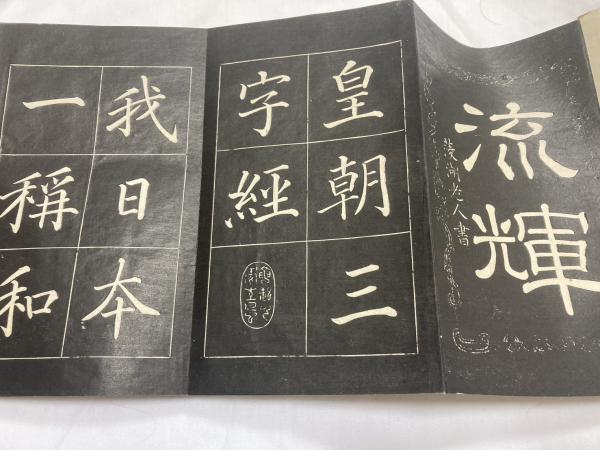 流輝
菱湖老人書
皇朝三
字經
我日本
一稱和